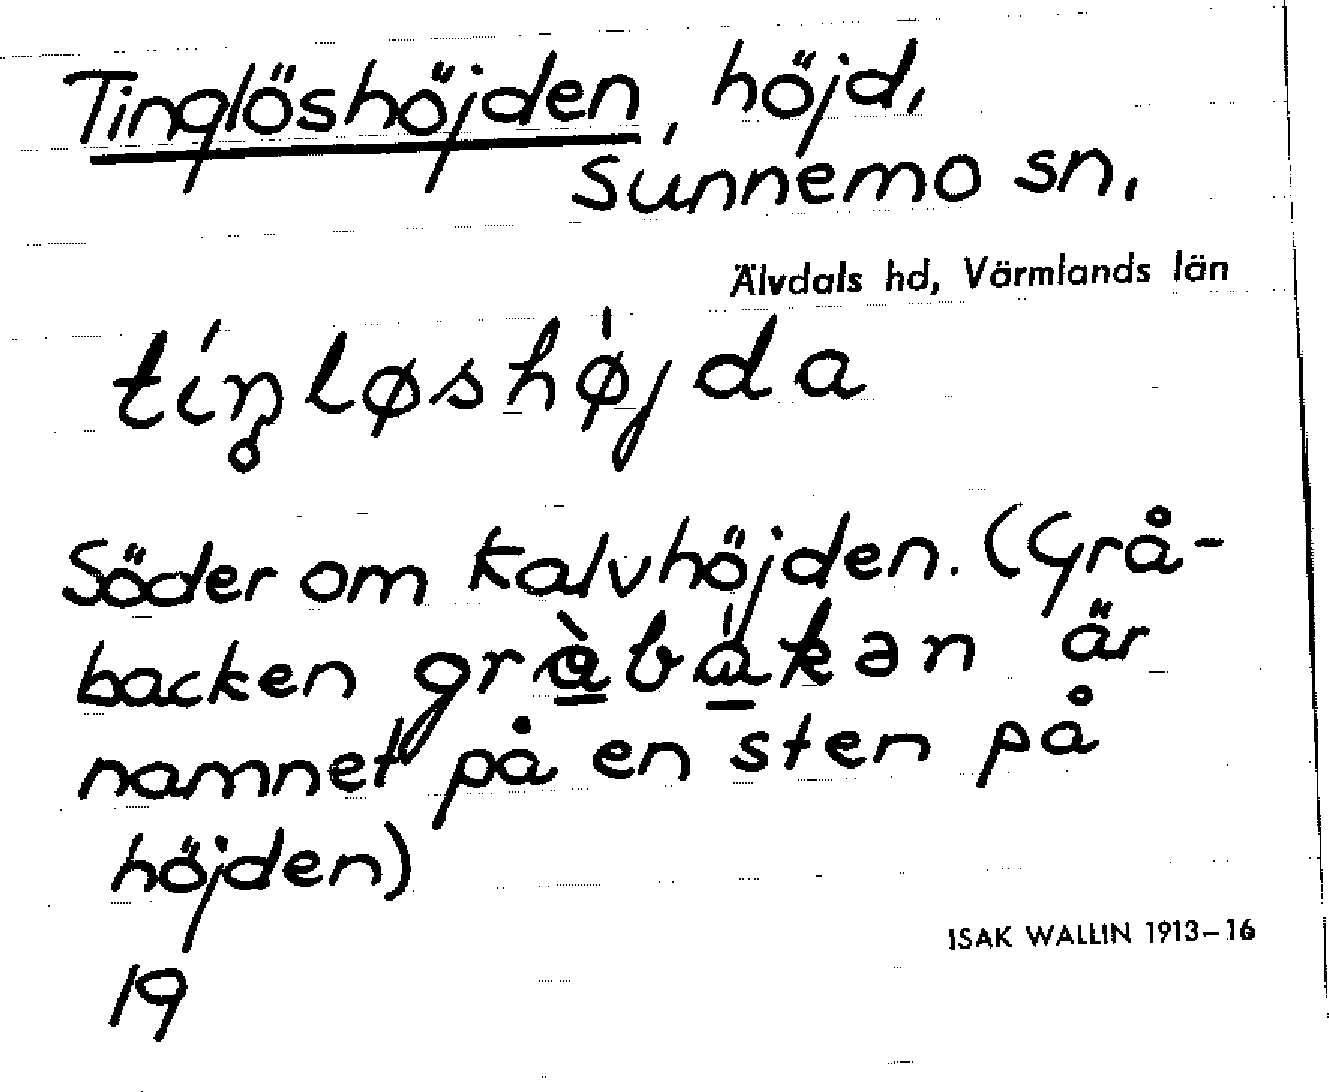 Tinglöshöjden, höjd,
Sunnemo sn.
Älvdals hd, Värmlands län
tíŋløshø̍jda
Söder om Kalvhöjden. (Grå-
backen grà̱bá̱kən är
namnet på en sten på
höjden)
ISAK WALLIN 1913–16
19